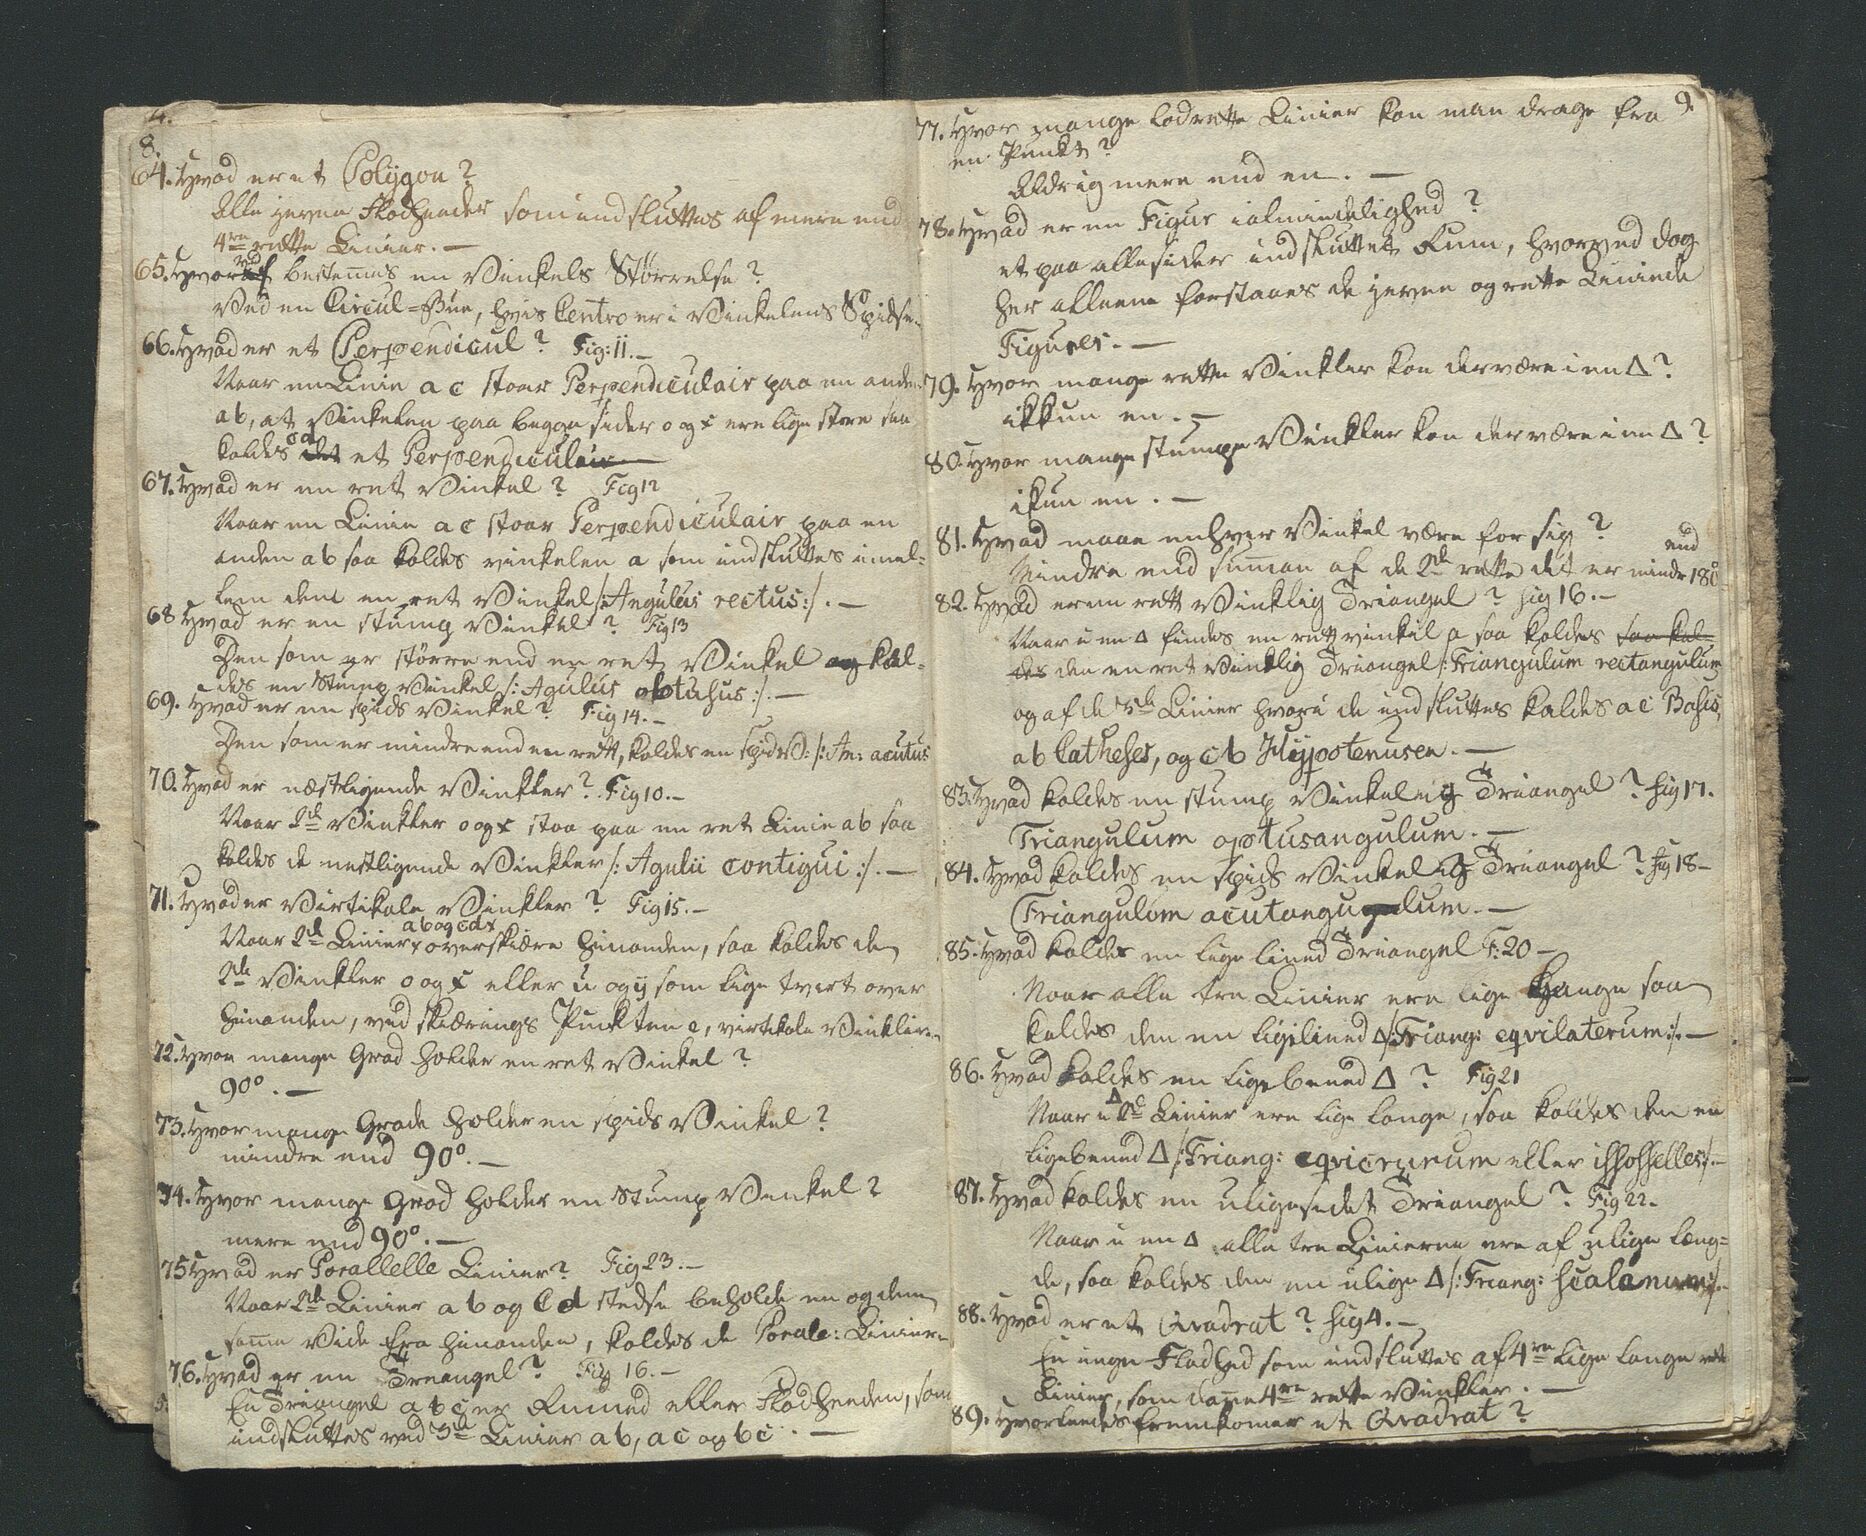 8.
64. Hvad er et Polÿgon?
Alle jevne Fladheeder som indsluttes af mere end
4re rette Linier. —
65. Hvorved bestemes en Vinkels Størrelse?
Ved en Circul=Bue, hvis Centro er i Vinkelens Spidse.
66. Hvad er et Perpendicul? Fig: 11. —
Naar en Linie a c staar Perpendiculair paa en anden
a b, at Vinkelen paa begge sider o og x ere lige store saa
kaldes cd det et Perpendiculair
67. Hvad er en ret Vinkel? Fig 12
Naar en Linie a c staar Perpendiculair paa en
anden a b saa kaldes vinkelen a som indsluttes imel-
lem dem en ret Vinkel /: Angulus rectus :/. —
68 Hvad er en stump Vinkel? Fig 13
Den som er større end en ret Vinkel og kal-
des en Stump Vinkel /: Agulus obtusus :/. —
69. Hvad er en spids Vinkel? Fig 14. —
Den som er mindre end en rett, kaldes en spids V: /: An: acutus
70. Hvad er næstligende Vinkler? Fig 10. —
Naar 2de Vinkler o og x staa paa en ret Linie a b saa
kaldes de nestligende Vinkler /: Agulii contigui :/. —
71. Hvad er Virtikale Vinkler? Fig 15. —
Naar 2de Linier a b og c d x overskiære hinanden, saa kaldes de
2de Vinkler o og x eller u og ÿ som lige tvert over
hinanden, ved skiærings Puncten c, virtikale Vinkler. —
72. Hvor mange Grad holder en ret Vinkel?
90°. —
73. Hvor mange Grade holder en spids Vinkel?
mindre end 90°. —
74. Hvor mange Grad holder en Stump Vinkel?
mere end 90°. —
75 Hvad er Parallelle Linier? Fig 23. —
Naar 2de Linier a b og C d stedse beholde en og den
same Vide fra hinanden, kaldes de Parale: Linier —
76. Hvad er en Treangel? Fig 16. —
En Triangel a b c er Rumed eller Fladheeden, som
indsluttes ved 3de Linier a b, a c og b c. —
9.
77. Hvor mange lodrette Linier kan man drage fra
en Punkt?
Aldrig mere end en. —
78. Hvad er en Figur i almindelighed?
et paa alle sider indsluttet Rum, hvorved dog
her alleene forstaaes de jevne og rette Liniede
Figurer. —
79. Hvor mange rette Vinkler kan der være i en Δ?
ikkun en. —
80. Hvor mange stumpe Vinkler kan der være i en Δ?
ikun en. —
81. Hvad maae enhver Vinkel være for sig?
Mindre end suman af de 2de rette det er mindr end 180°
82. Hvad er en rett Vinklig Triangel? fig 16. —
Naar i en Δ findes en rett vinkel a saa kaldes saa kal-
des den en ret Vinklig Triangel /: Triangulum rectangulum
og af de 3de Linier hvori de indsluttes kaldes a c Basis,
a b Cathesses, og c b Hÿpotenusen. —
83. Hvad kaldes en stump Vinkelig Triangel? fig 17.
Triangulum optusangulum. —
84. Hvad kaldes en spids Vinkelig Triangel? fig 18 —
Triangulom acutangulum. —
85. Hvad kaldes en lige lined Triangel F: 20 —
Naar alle tre Linier ere lige lange saa
kaldes den en ligelined Δ /: Triang: eqvilaterum :/. —
86. Hvad kaldes en ligebened Δ? Fig 21
Naar i Δ 2de Linier ere lige lange, saa kaldes den en
ligebened Δ /: Triang: eqvicrurum eller issosselles :/. —
87. Hvad kaldes en uligesidet Triangel? Fig 22. —
Naar i en Δ alle tre Linierne ere af ulige læng-
de, saa kaldes den en ulige Δ /: Triang: scalanum :/. —
88. Hvad er et Qvadrat? fig 4. —
En jevn Fladhed som indsluttes af 4re lige lange rette
Linier, som dane 4re rette Vinkler. —
89. Hvorledes fremkomer et Qvadrat?